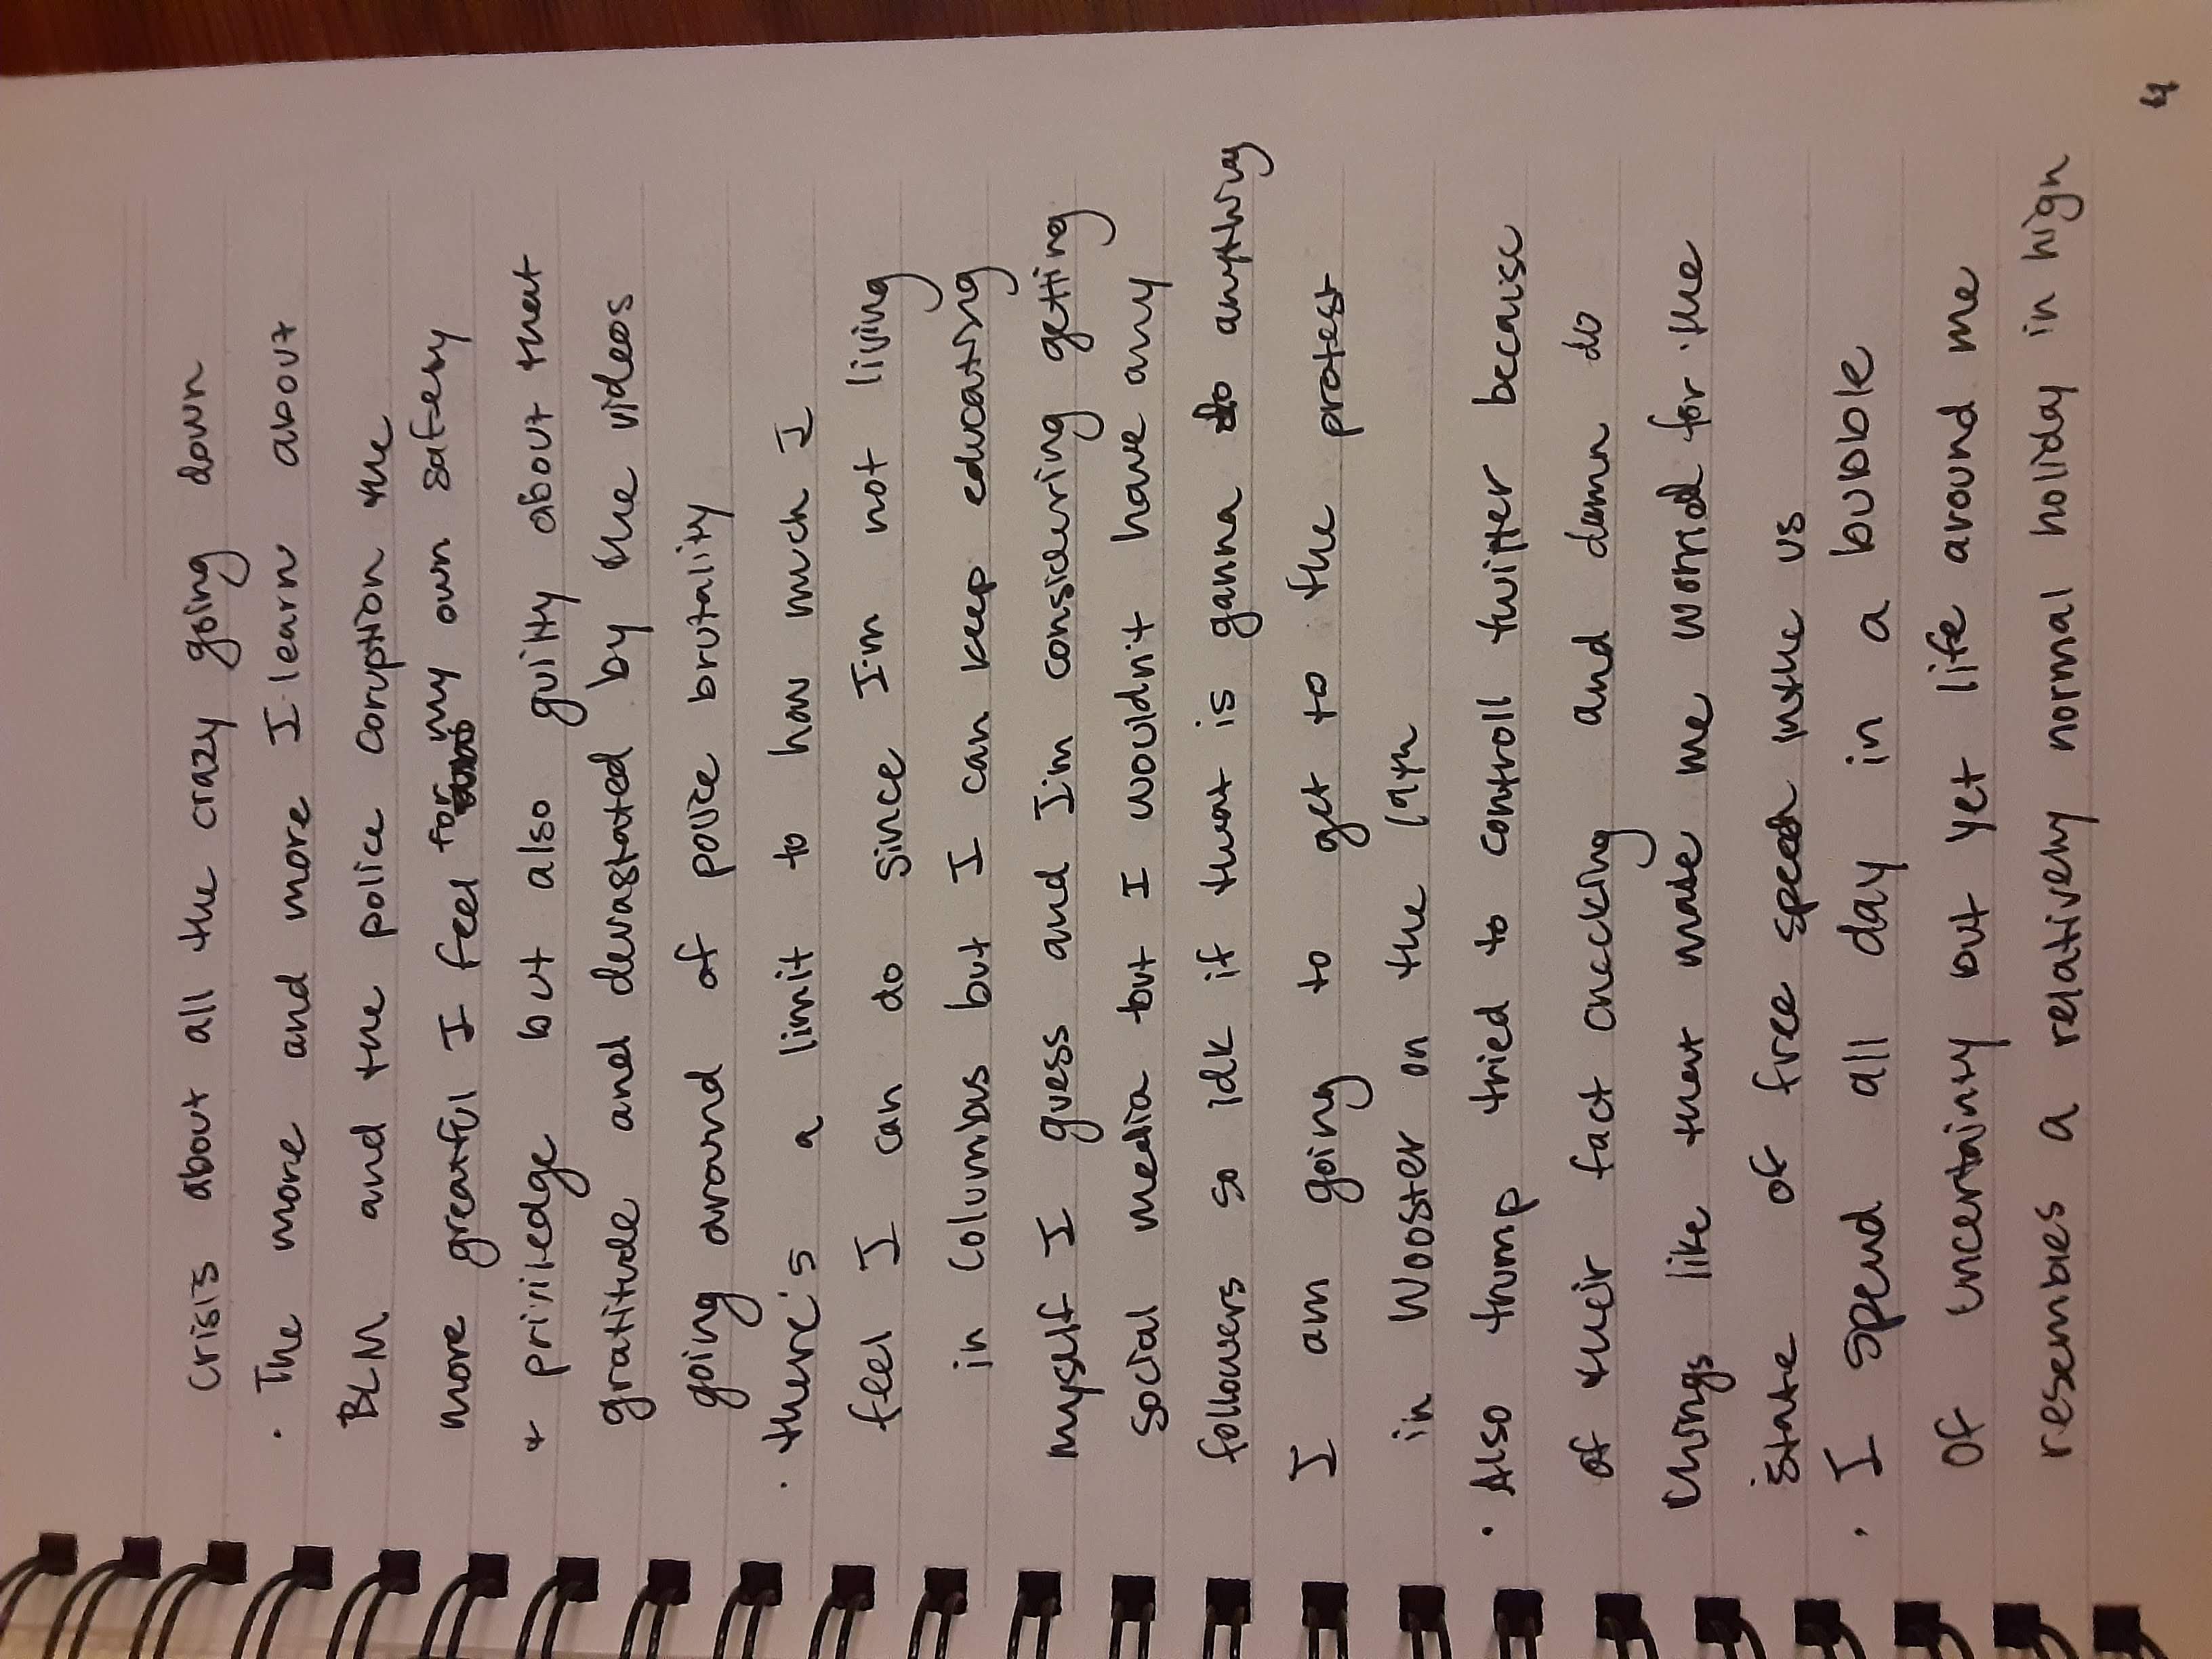 crisis about all the crazy going down
· The more and more I learn about
BLM and the police corruption the
more greatful I feel for my own safety
+ priviledge but also guilty about that
gratitude and devastated by the videos
going around of police brutality
· there's a limit to how much I
feel I can do since I'm not living
in Columbus but I can keep educating
myself I guess and I'm considering getting
social media but I wouldn't have any
followers so idk if that is ganna do anything
I am going to get to the protest
in Wooster on the 19th
· Also trump tried to controll twitter because
of their fact checking and damn do
things like that make me worried for the
state of free speech in the us
· I spend all day in a bubble
of uncertainty but yet life around me
resembles a relatively normal holiday in high
4